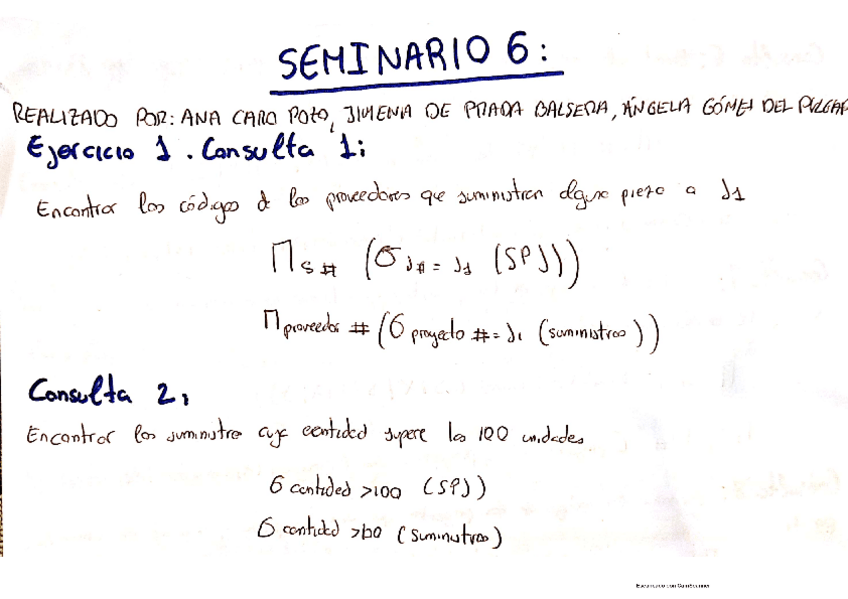 SEMINARIO 6:
REALIZADO POR: ANA CARO POZO, JIMENA DE PRADA BALSERA, ÁNGELA GÓMEZ DEL PULGAR
Ejercicio 1. Consulta 1:
Encontrar los códigos de los proveedores que suministran alguna pieza a J1
Π S# (σ J# = J1 (SPJ))
Π proveedor # (σ proyecto # = J1 (suministros))
Consulta 2:
Encontrar los suministro cuya cantidad supere las 100 unidades
σ cantidad >100 (SPJ)
σ cantidad >100 (suministros)
Escaneado con CamScanner